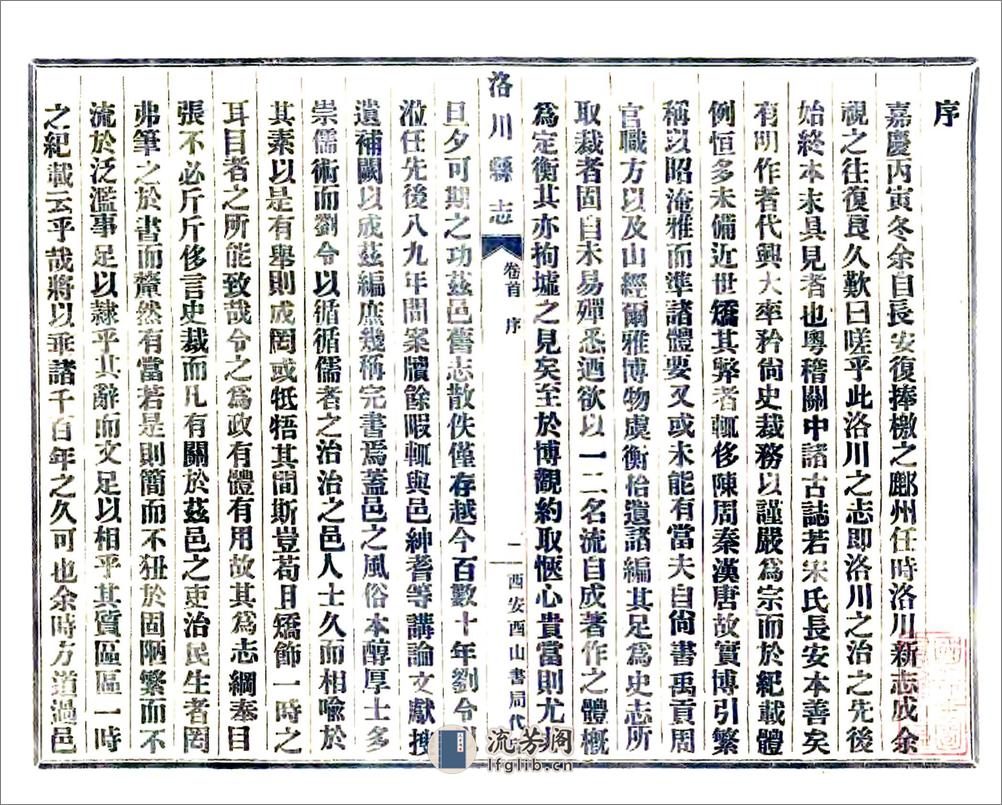 序
嘉慶丙寅冬余自長安復捧檄之鄜州任時洛川新志成余
視之往復良久歎曰嗟乎此洛川之志即洛川之治之先後
始終本末具見者也粵稽關中諸古誌若宋氏長安本善矣
有明作者代興大率矜尚史裁務以謹嚴為宗而於紀載體
例恒多未備近世矯其弊者輒侈陳周秦漢唐故實博引繁
稱以昭淹雅而準諸體要又或未能有當夫自尚書禹貢周
官職方以及山經爾雅博物虞衡怡遺諸編其足為史志所
取裁者固自未易殫悉迺欲以一二名流自成著作之體概
為定衡其亦拘墟之見矣至於博觀約取愜心貴當則尤
洛川縣志
卷首
序
一
西安酉山書局代
旦夕可期之功茲邑舊志散佚僅存越今百數十年劉令
涖任先後八九年間案牘餘暇輒與邑紳耆等講論文獻搜
遺補闕以成茲編庶幾稱完書焉蓋邑之風俗本醇厚士多
崇儒術而劉令以循循儒者之治治之邑人士久而相喻於
其素以是有舉則成罔或牴牾其間斯豈苟且矯飾一時之
耳目者之所能致哉令之為政有體有用故其為志綱奉目
張不必斤斤侈言史裁而凡有關於茲邑之吏治民生者罔
弗筆之於書而釐然有當若是則簡而不狃於固陋繁而不
流於泛濫事足以隸乎其辭而文足以相乎其質區區一時
之紀載云乎哉將以垂諸千百年之久可也余時方道過邑
流芳阁
lfglib.cn